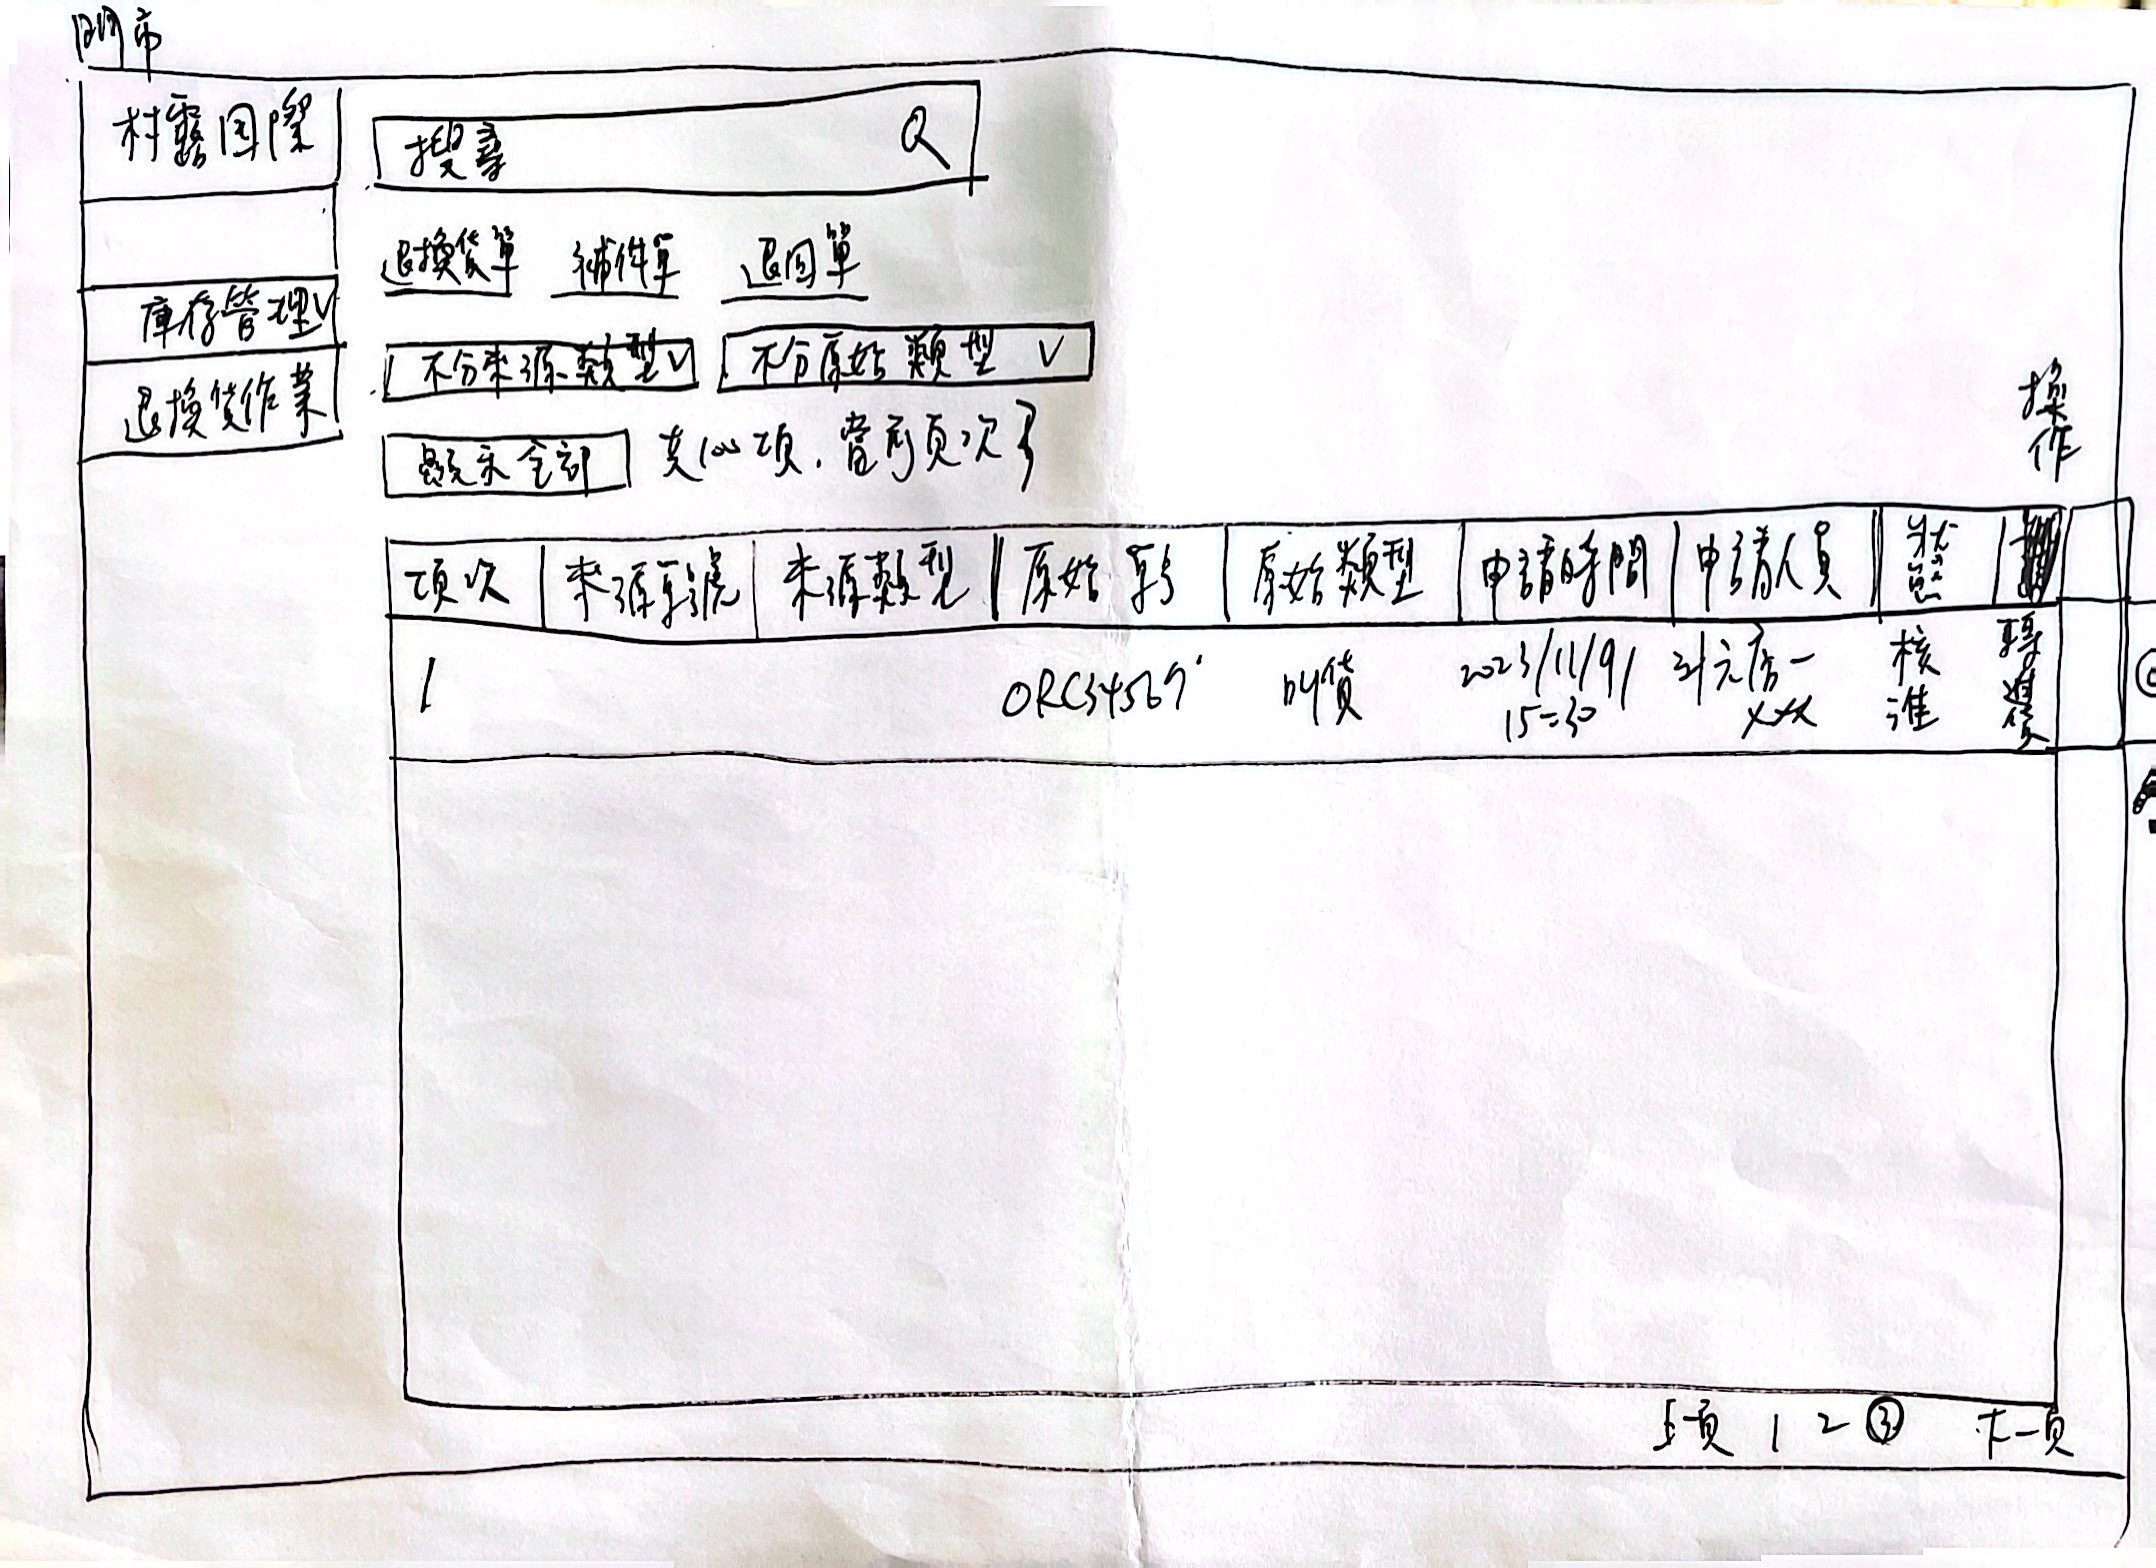 門市
村露国際
搜尋
退換貨單 補件單 退回單
庫存管理
不分來源類型 不分原始類型
退換貨作業
顯示全部 共100項，當前頁次3
操作
項次 來源單號 來源類型 原始單号 原始類型 申請時間 申請人員 狀態
1 ORC34567 叫貨 2023/11/9/ 15:30 店一 xxx 核准
上頁 1 2 3 下一頁